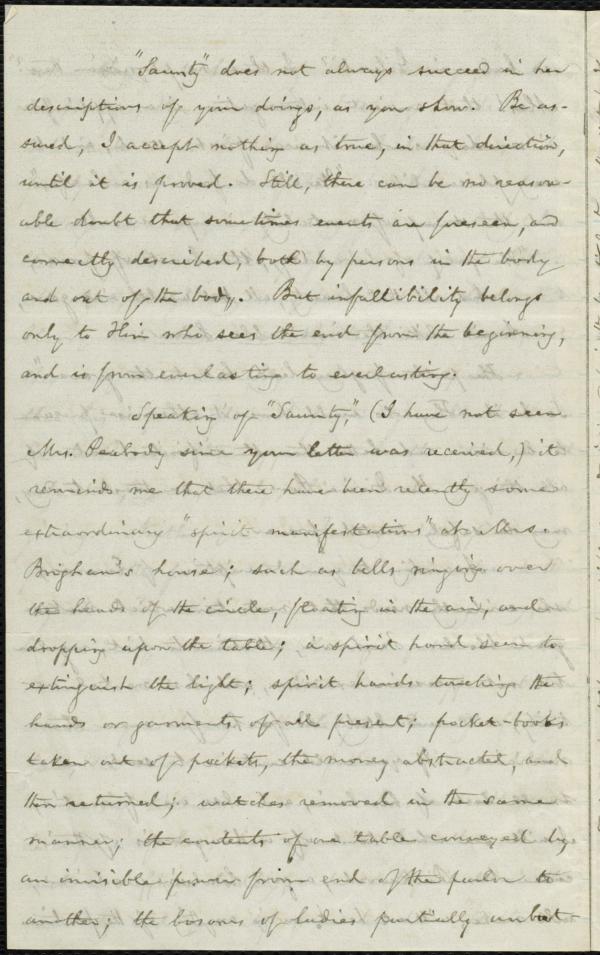 "Saunty" does not always succeed in her
descriptions of your doings, as you show. Be as-
sured, I accept nothing as true, in that direction,
until it is proved. Still, there can be no reason-
able doubt that sometimes events are foreseen, and
correctly described, both by persons in the body
and out of the body. But infallibility belongs
only to Him who sees the end from the beginning,
and is from everlasting to everlasting.
Speaking of "Saunty," (I have not seen
Mrs. Peabody since your letter was received,) it
reminds me that there have been recently some
extraordinary "spirit manifestations" at Mrs.
Brigham's house; such as bells ringing over
the heads of the circle, floating in the air, and
dropping upon the table; a spirit hand seen to
extinguish the light; spirit hands touching the
hands or garments of all present; pocket-books
taken out of pockets, the money abstracted, and
then returned; watches removed in the same
manner; the contents of one table conveyed by
an invisible power from end of the parlor to
another; the bosoms of ladies partially unbut-